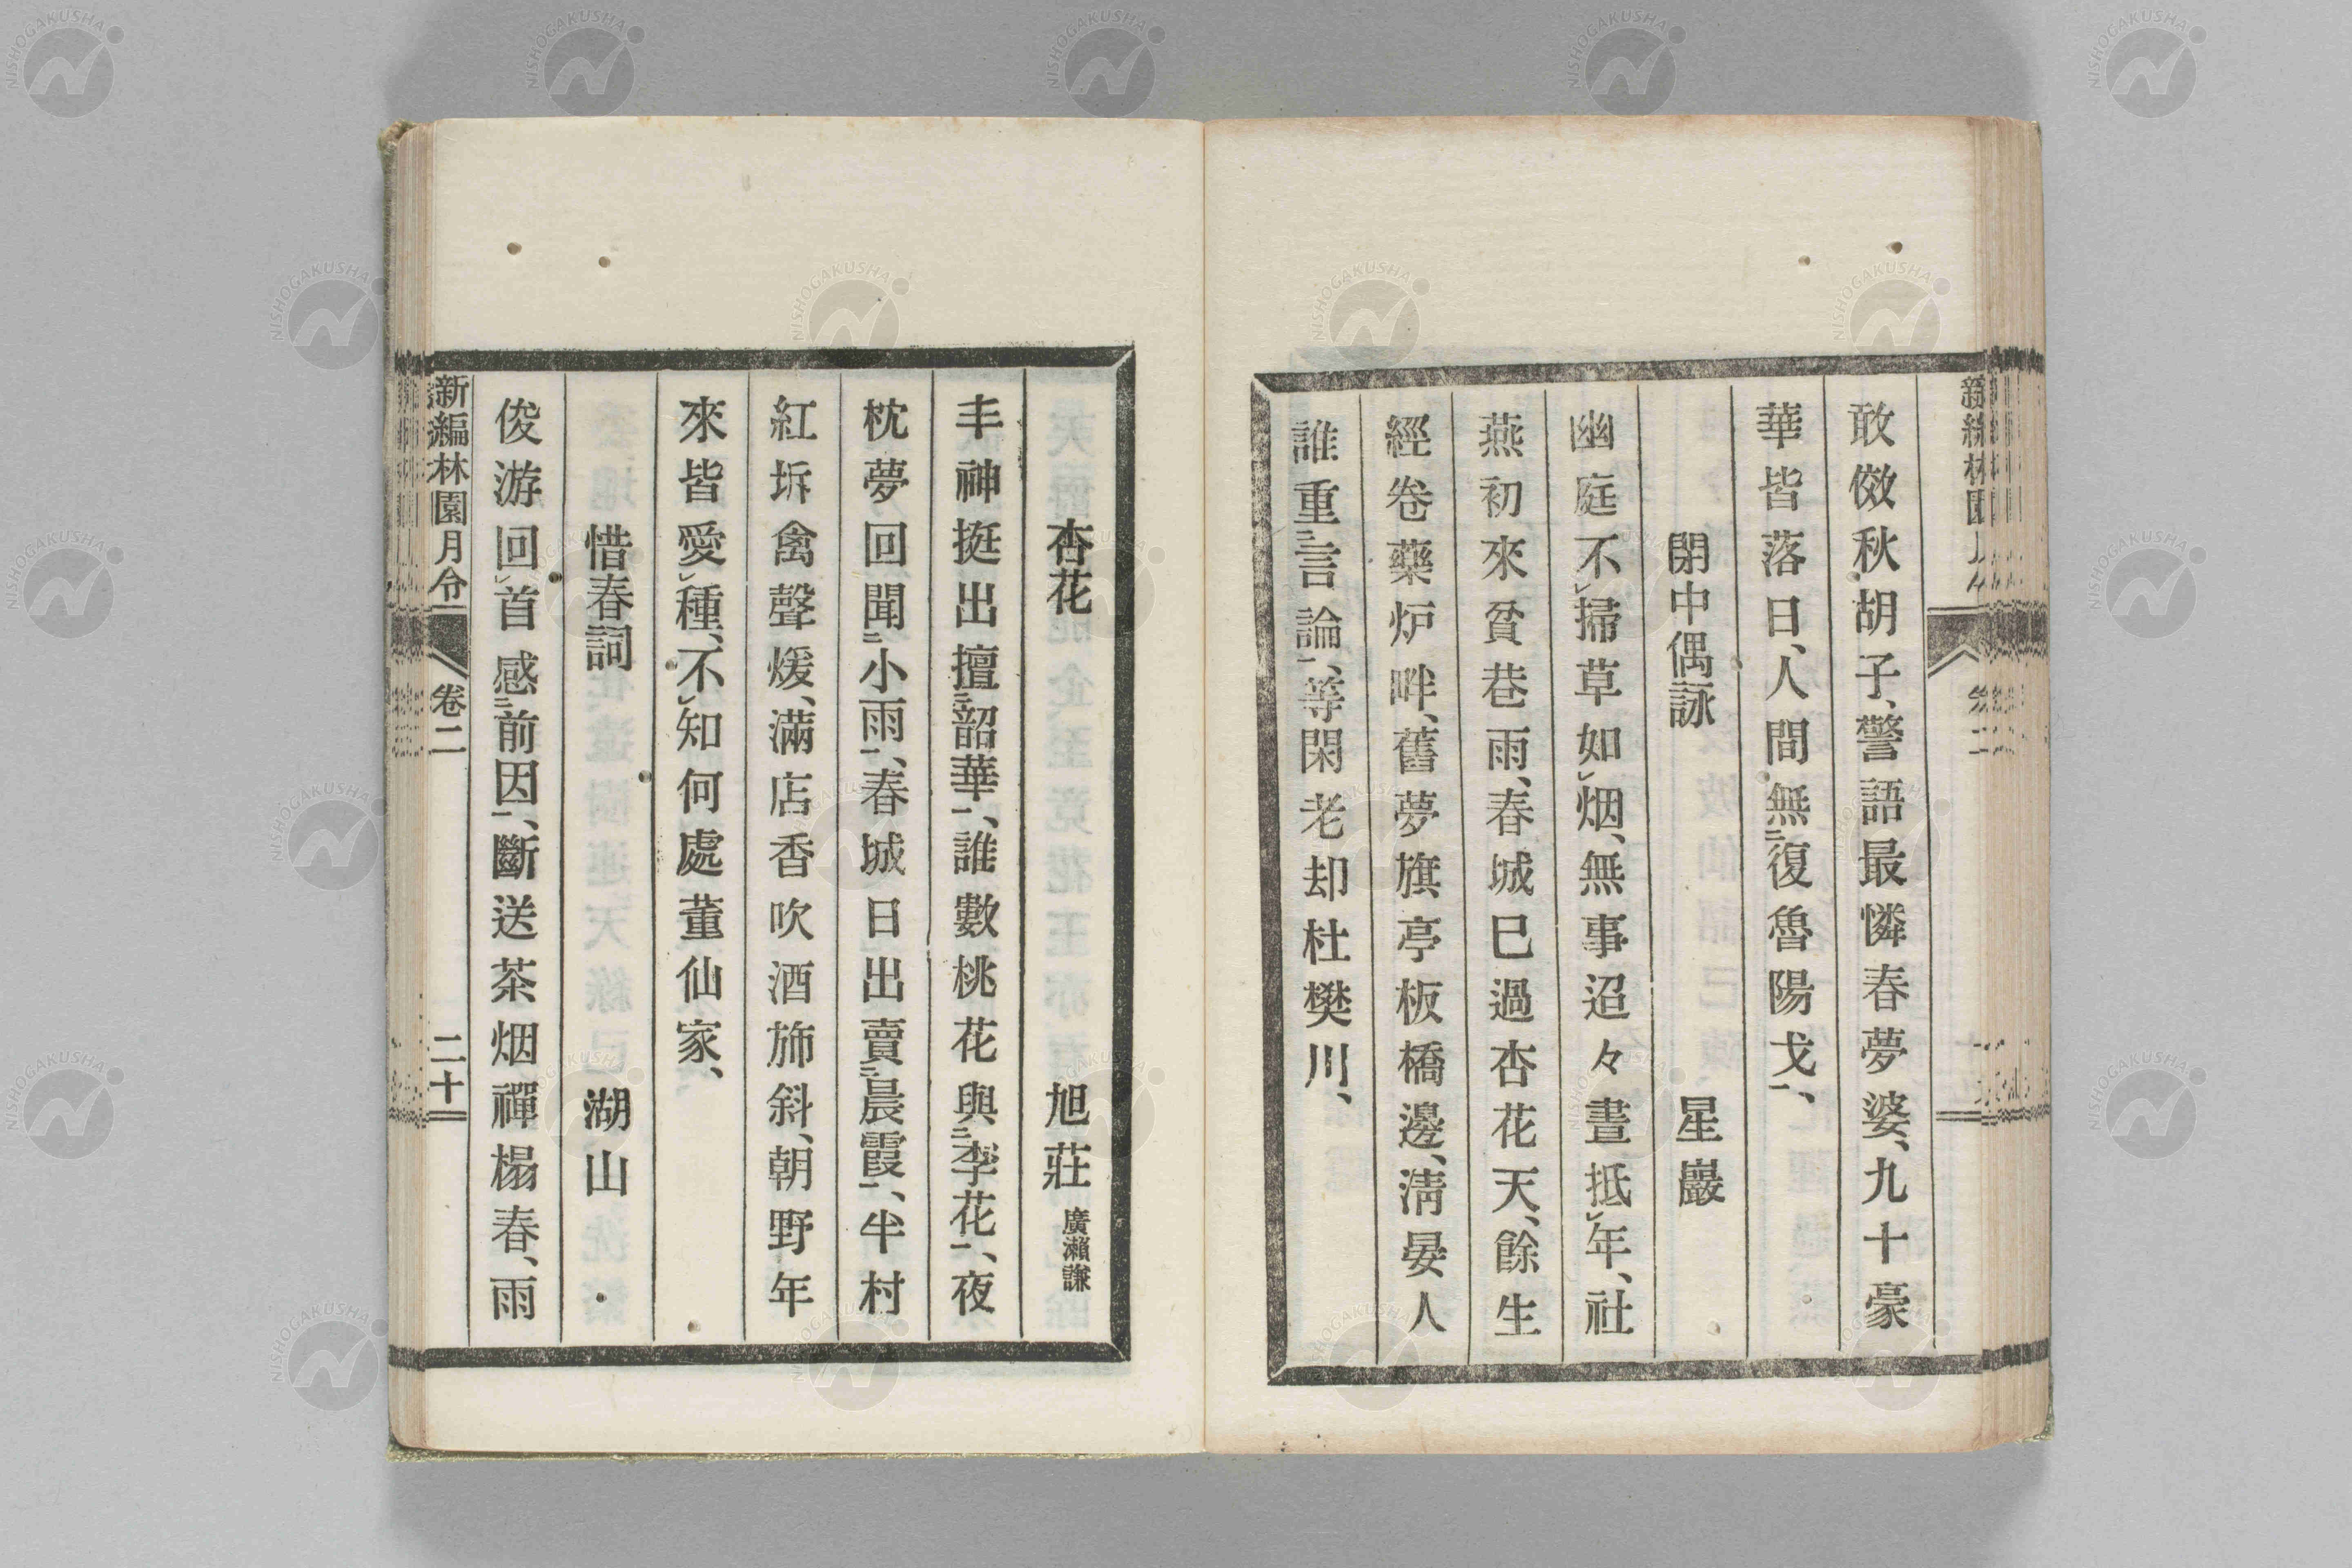 敢倣秋胡子、警語最憐春夢婆、九十豪
華皆落日、人間無㆓復魯陽戈㆒、
閑中偶詠　星巖
幽庭不㆑掃草如㆑烟、無事迢々晝抵㆑年、社
燕初來貧巷雨、春城已過杏花天、餘生
經卷藥炉畔、舊夢旗亭板橋邊、淸晏人
誰重㆓言論㆒、等閑老却杜樊川、
杏花　旭莊 廣瀨謙
丰神挺出擅㆓韶華㆒、誰數桃花與㆓李花㆒、夜
枕夢回聞㆓小雨㆒、春城日出賣㆓晨霞㆒、半村
紅坼禽聲煖、滿店香吹酒斾斜、朝野年
來皆愛㆑種、不㆑知何處董仙家、
惜春詞　湖山
俊游回㆑首感㆓前因㆒、斷送茶烟禪榻春、雨
新編林園月令　卷二　二十
NISHOGAKUSHA